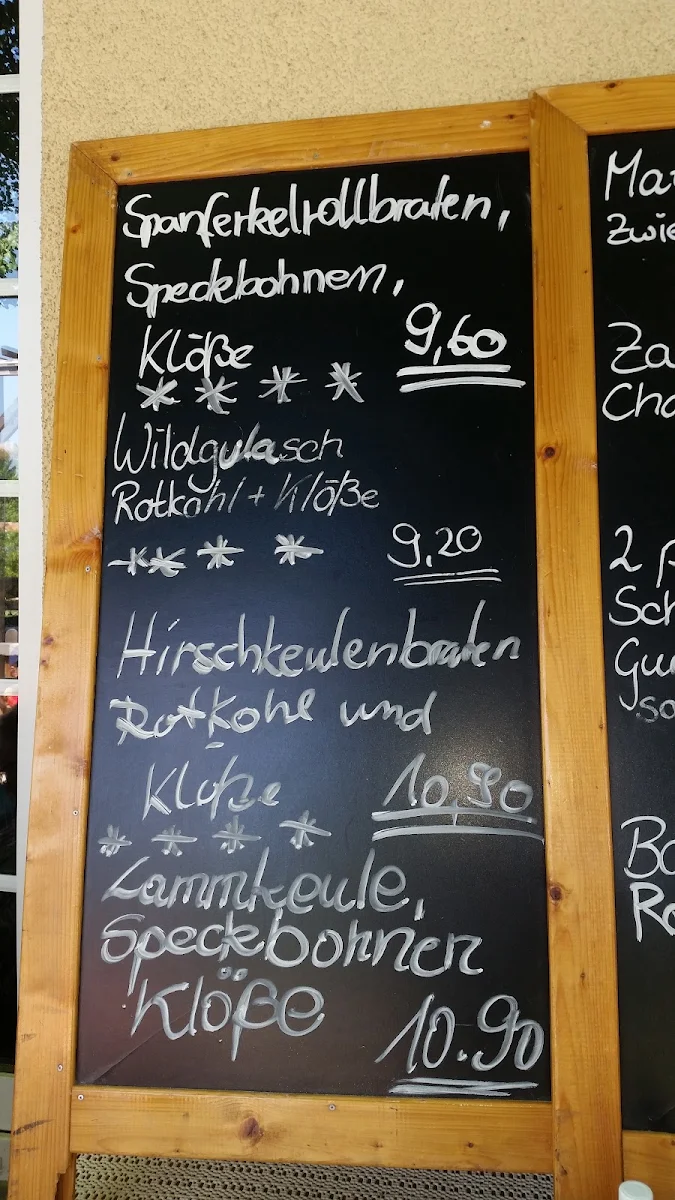 Spanferkelrollbraten,
Speckbohnen,
Klöße 9,60
* * * *
Wildgulasch
Rotkohl + Klöße
* * * * 9,20
Hirschkeulenbraten
Rotkohl und
Klöße 10,90
* * * *
Lammkeule,
Speckbohnen
Klöße
10.90
2